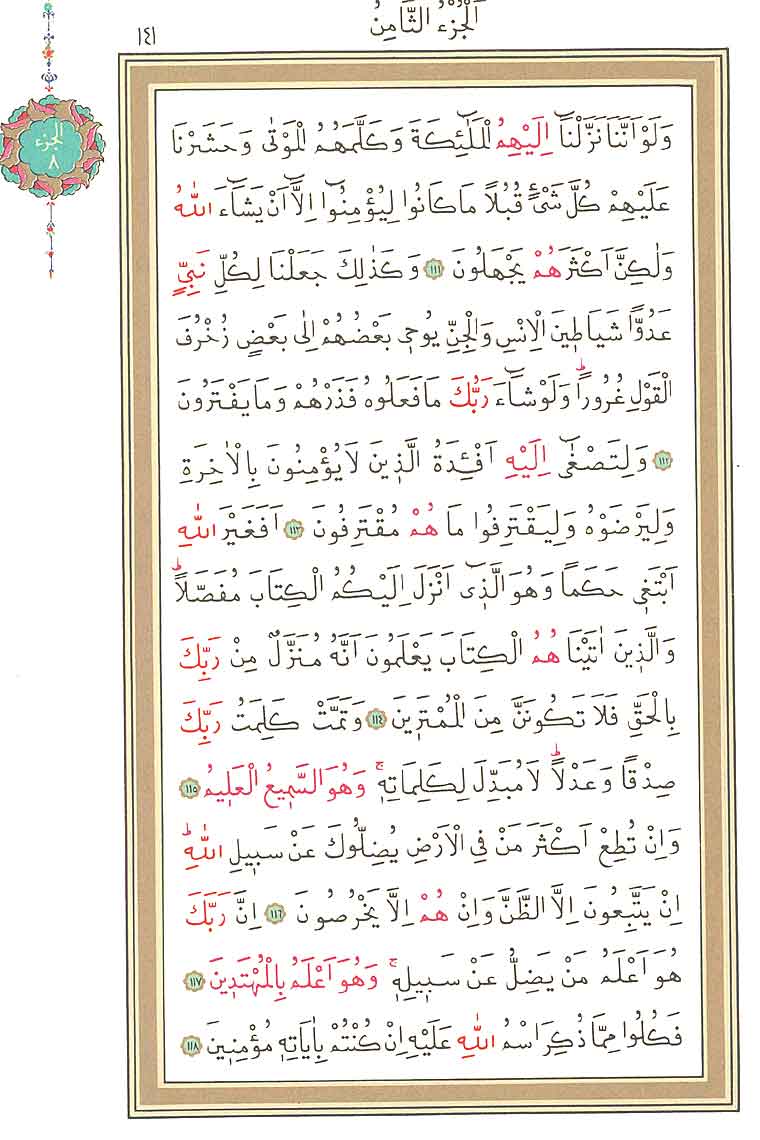 اَلْجُزْءُ الثَّامِنُ
١٤١
الجزء
٨
وَلَوْ اَنَّنَا نَزَّلْنَٓا اِلَيْهِمُ الْمَلٰٓئِكَةَ وَكَلَّمَهُمُ الْمَوْتٰى وَحَشَرْنَا
عَلَيْهِمْ كُلَّ شَيْءٍ قُبُلًا مَا كَانُوا لِيُؤْمِنُٓوا اِلَّٓا اَنْ يَشَٓاءَ اللّٰهُ
وَلٰكِنَّ اَكْثَرَهُمْ يَجْهَلُونَ ﴿١١١﴾ وَكَذٰلِكَ جَعَلْنَا لِكُلِّ نَبِيٍّ
عَدُوًّا شَيَاط۪ينَ الْاِنْسِ وَالْجِنِّ يُوح۪ي بَعْضُهُمْ اِلٰى بَعْضٍ زُخْرُفَ
الْقَوْلِ غُرُورًاۜ وَلَوْ شَٓاءَ رَبُّكَ مَا فَعَلُوهُ فَذَرْهُمْ وَمَا يَفْتَرُونَ
﴿١١٢﴾ وَلِتَصْغٰٓى اِلَيْهِ اَفْـِٔدَةُ الَّذ۪ينَ لَا يُؤْمِنُونَ بِالْاٰخِرَةِ
وَلِيَرْضَوْهُ وَلِيَقْتَرِفُوا مَا هُمْ مُقْتَرِفُونَ ﴿١١٣﴾ اَفَغَيْرَ اللّٰهِ
اَبْتَغ۪ي حَكَمًا وَهُوَ الَّذ۪ٓي اَنْزَلَ اِلَيْكُمُ الْكِتَابَ مُفَصَّلًاۜ
وَالَّذ۪ينَ اٰتَيْنَا هُمُ الْكِتَابَ يَعْلَمُونَ اَنَّهُ مُنَزَّلٌ مِنْ رَبِّكَ
بِالْحَقِّ فَلَا تَكُونَنَّ مِنَ الْمُمْتَر۪ينَ ﴿١١٤﴾ وَتَمَّتْ كَلِمَتُ رَبِّكَ
صِدْقًا وَعَدْلًاۜ لَا مُبَدِّلَ لِكَلِمَاتِه۪ۚ وَهُوَ السَّم۪يعُ الْعَل۪يمُ ﴿١١٥﴾
وَاِنْ تُطِعْ اَكْثَرَ مَنْ فِي الْاَرْضِ يُضِلُّوكَ عَنْ سَب۪يلِ اللّٰهِۜ
اِنْ يَتَّبِعُونَ اِلَّا الظَّنَّ وَاِنْ هُمْ اِلَّا يَخْرُصُونَ ﴿١١٦﴾ اِنَّ رَبَّكَ
هُوَ اَعْلَمُ مَنْ يَضِلُّ عَنْ سَب۪يلِه۪ۚ وَهُوَ اَعْلَمُ بِالْمُهْتَد۪ينَ ﴿١١٧﴾
فَكُلُوا مِمَّا ذُكِرَ اسْمُ اللّٰهِ عَلَيْهِ اِنْ كُنْتُمْ بِاٰيَاتِه۪ مُؤْمِن۪ينَ ﴿١١٨﴾